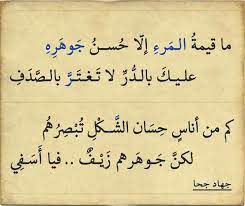 ما قيمةُ المَرءِ إلّا حُسنُ جَوهَرِهِ
عليكَ بالدُّرِّ لا تَغتَرَّ بالصَّدَفِ
كم من أناسٍ حِسَان الشَّكْلِ تُبْصِرُهُم
لكنَّ جَوهَرهم زَيْفٌ .. فيا أسَفي
جهاد جحا